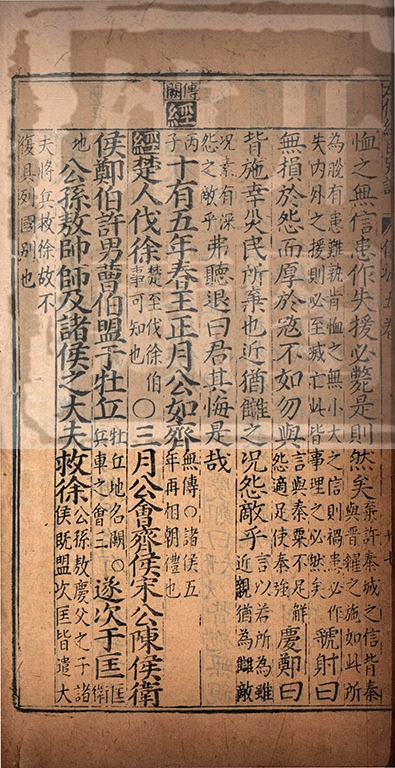 恤之無信患作失援必斃是則然矣棄許秦城之信皆秦與晉糴之施如此所
為脫有患難孰肯恤之無小大之信則禍患必作失内外之援則必至滅亡此皆事理之必然矣虢射曰
無損於怨而厚於寇不如勿與言與秦粟不足解怨適足使秦強慶鄭曰
背施幸災民所棄也近猶讎之況怨敵乎言以若所為雖近親猶為讎敵
況素有深怨之敵乎弗聽退曰君其悔是哉
傳闕
經丙子十有五年春王正月公如齊無傳〇諸侯五年再相朝禮也
經楚人伐徐楚至伐徐伯事可知也〇三月公會齊侯宋公陳侯衛
侯鄭伯許男曹伯盟于牡丘牡丘地名闕〇兵車之會三〇遂次于匡匡衛
地公孫敖帥師及諸侯之大夫救徐公孫敖慶父之子諸侯既盟次匡皆遣大
夫將兵救徐故不復具列國別也